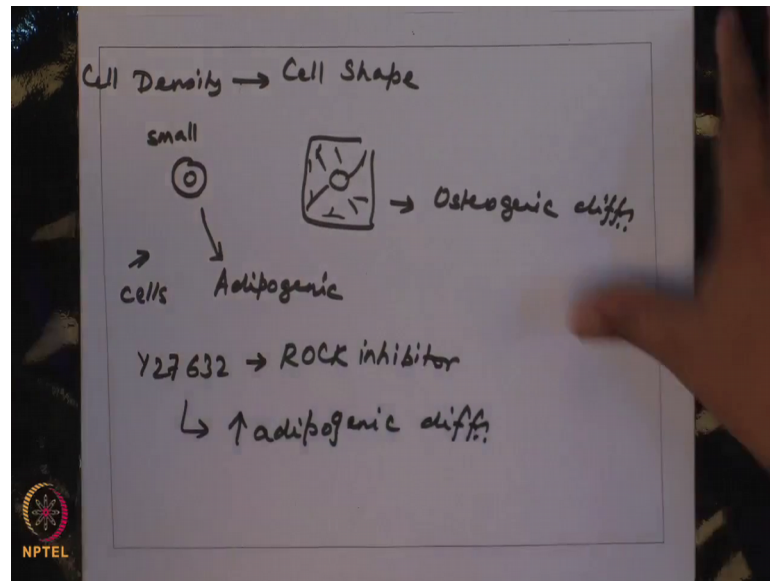 Cell Density → Cell Shape
small
→ Osteogenic diffn.
cells Adipogenic
Y27632 → ROCK inhibitor
↳ ↑ adipogenic diffn.
NPTEL